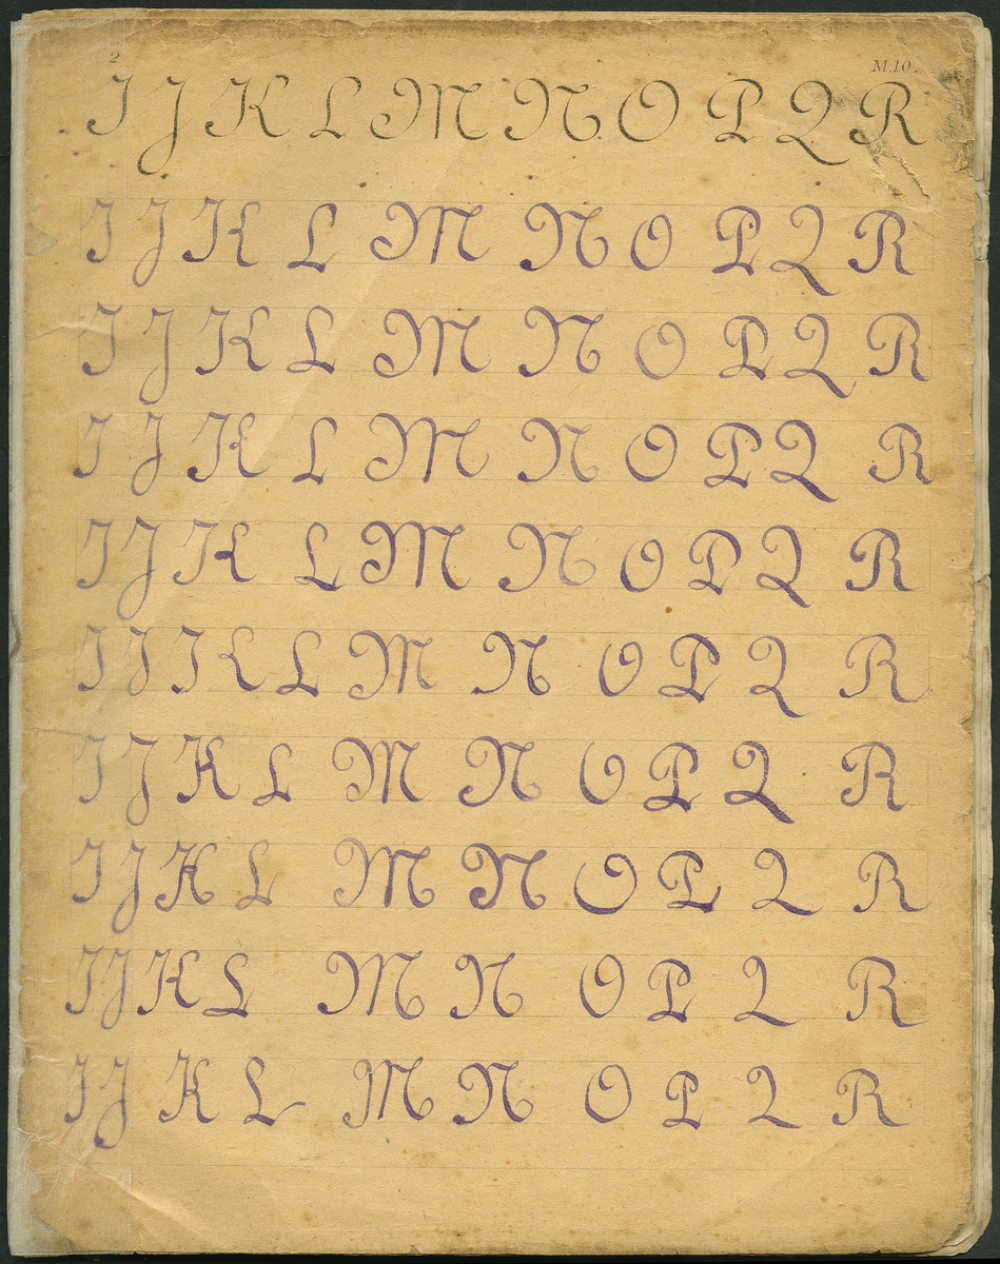 2 M.10.
I J K L M N O P Q R
I J K L M N O P Q R
I J K L M N O P Q R
I J K L M N O P Q R
I J K L M N O P Q R
I J K L M N O P Q R
I J K L M N O P Q R
I J K L M N O P Q R
I J K L M N O P Q R
I J K L M N O P Q R